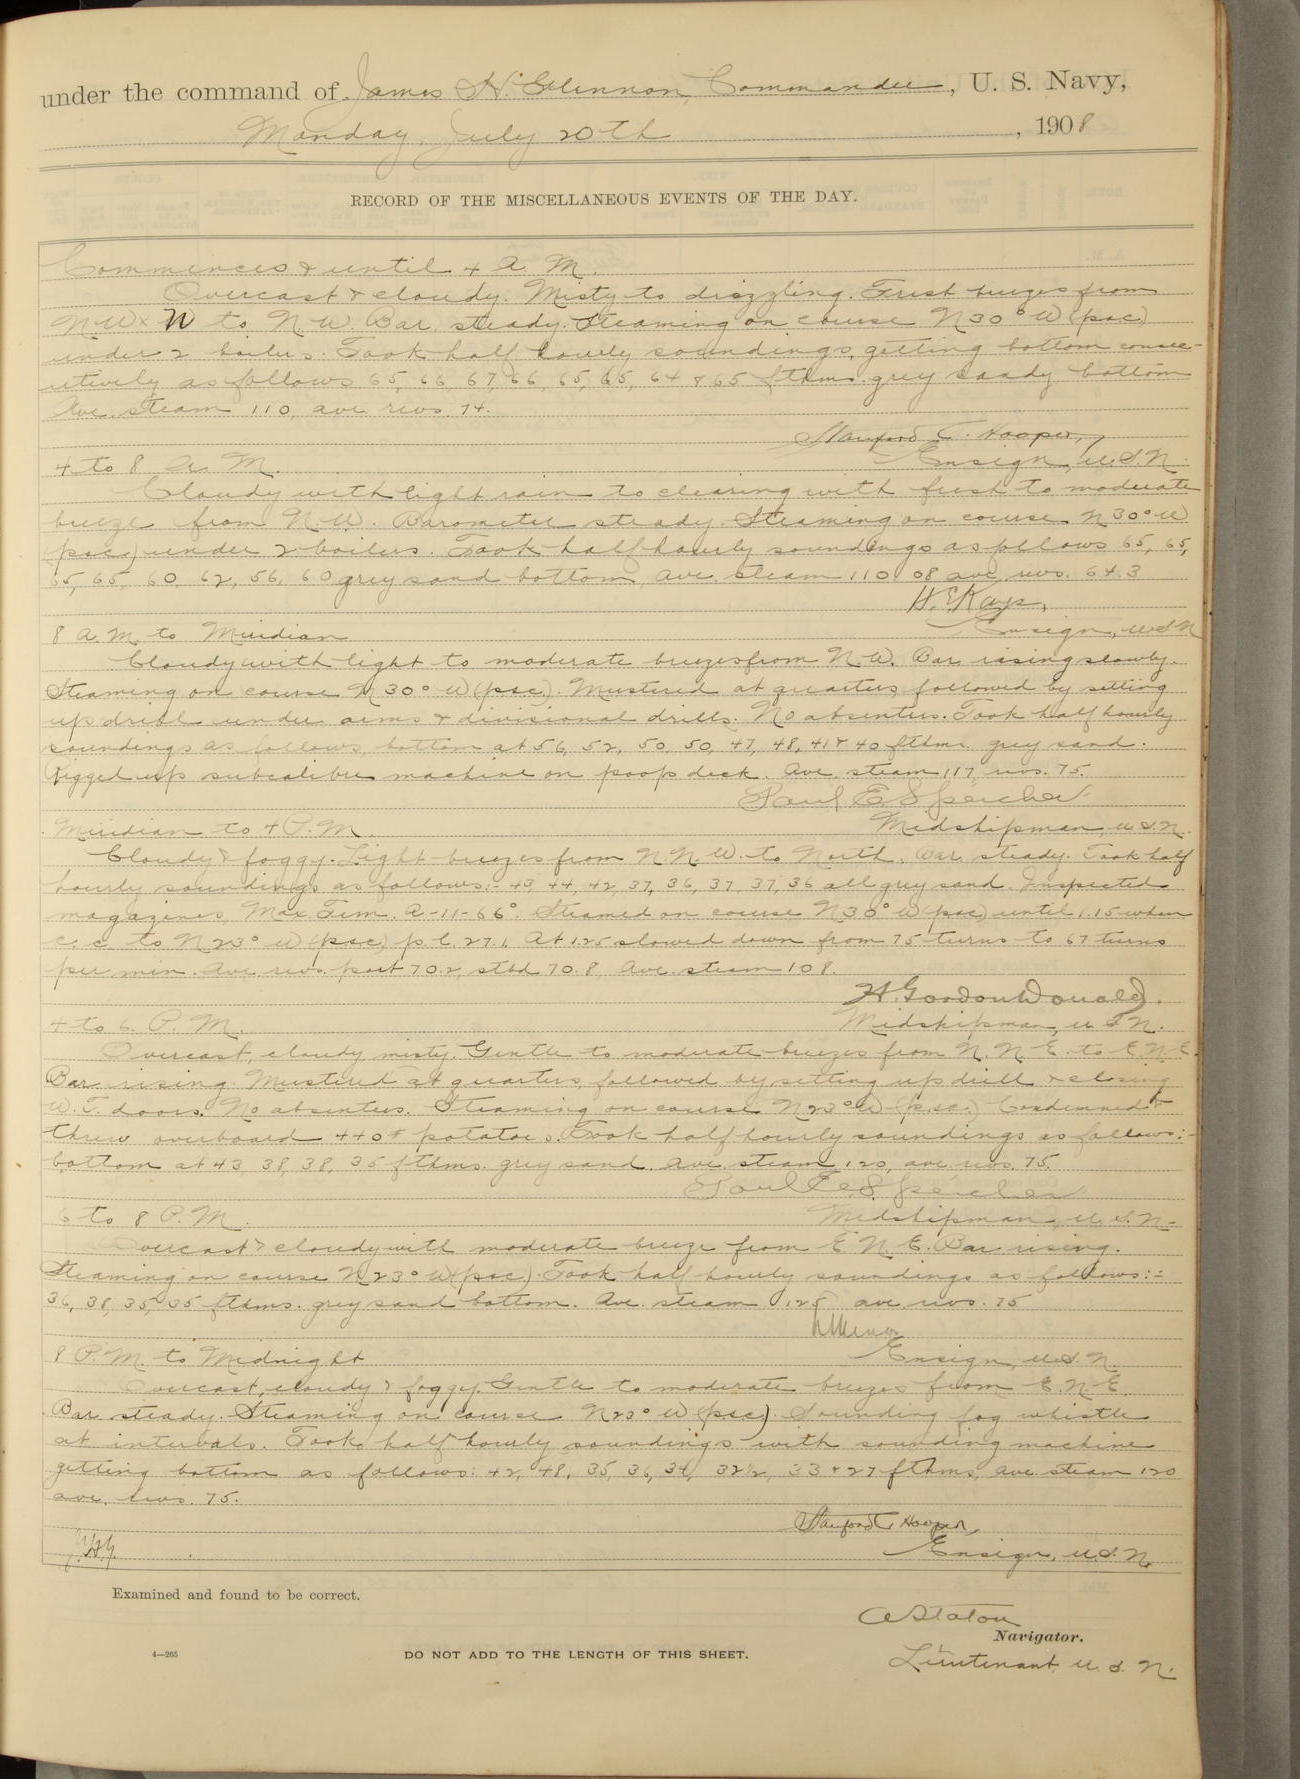 under the command of James H. Glennon, Commander, U. S. Navy,
Monday, July 20th, 1908
RECORD OF THE MISCELLANEOUS EVENTS OF THE DAY.
Commences & until 4 A. M.
Overcast & cloudy. Misty to drizzling. Fresh breezes from
NW x W to N. W. Bar. steady. Steaming on course N30° W (psc)
under 2 boilers. Took half hourly soundings, getting bottom consec-
utively as follows 65, 66, 67, 66, 65, 65, 64 & 65 fthms. grey sandy bottom
Ave. steam 110, ave revs. 74.
Stanford C. Hooper,
Ensign, U.S.N.
4 to 8 A. M.
Cloudy with light rain to clearing with fresh to moderate
breeze from N.W. Barometer steady. Steaming on course N30° W
(psc.) under 2 boilers. Took half hourly soundings as follows 65, 65,
65, 65, 60, 62, 56, 60 grey sand bottom, ave. steam 110.08 ave. revs. 64.3
H. E. Kays,
Ensign, U.S.N
8 A. M. to Meridian
Cloudy with light to moderate breezes from N.W. Bar. rising slowly.
Steaming on course N30° W (psc). Mustered at quarters followed by setting
up drill under arms & divisional drills. No absentees. Took half hourly
soundings as follows, bottom at 56, 52, 50, 50, 47, 48, 41 & 40 fthms. grey sand.
Rigged up subcalibre machine on poop deck. Ave. steam 117, revs. 75.
Paul E. Speicher
Midshipman, U.S.N.
Meridian to 4 P. M.
Cloudy & foggy. Light breezes from N. N. W. to North. Bar. steady. Took half
hourly soundings as follows:- 43, 44, 42, 37, 36, 37, 37, 36 all grey sand. Inspected
magazines, Max. Tem. A-11-66°. Steamed on course N30° W (psc) until 1.15 when
c. c. to N23° W (psc) p. l. 27.1. At 1.25 slowed down from 75 turns to 67 turns
per min. Ave. revs. port 70.2, stbd 70.8, Ave. steam 108.
H. Gordon Donald.
Midshipman, U.S.N.
4 to 6. P. M.
Overcast, cloudy misty. Gentle to moderate breezes from N. N. E. to E. N. E.
Bar. rising. Mustered at quarters, followed by setting up drill & closing
W. T. doors. No absentees. Steaming on course N23° W (psc.) Condemned &
threw overboard 440# potatoes. Took half hourly soundings as follows:-
bottom at 43, 38, 38, 35 fthms. grey sand. Ave. steam 120, ave. revs. 75.
Paul E. Speicher
Midshipman, U.S.N.
6 to 8 P. M.
Overcast & cloudy with moderate breeze from E. N. E. Bar. rising.
Steaming on course N23° W (psc.). Took half hourly soundings as follows:-
36, 38, 35, 35 fthms. grey sand bottom. Ave. steam 125 ave revs. 75
Ensign, U.S.N.
8 P. M. to Midnight
Overcast, cloudy & foggy. Gentle to moderate breezes from E. N. E.
Bar. steady. Steaming on course N23° W (psc). Sounding fog whistle
at intervals. Took half hourly soundings with sounding machine
getting bottom as follows: 42, 48, 35, 36, 34, 32½, 33 & 27 fthms, ave. steam 120
ave. revs. 75.
Stanford C Hooper,
Ensign, U.S.N.
J.H.G.
Examined and found to be correct.
A Staton
Navigator.
Lieutenant U.S.N.
4—265
DO NOT ADD TO THE LENGTH OF THIS SHEET.